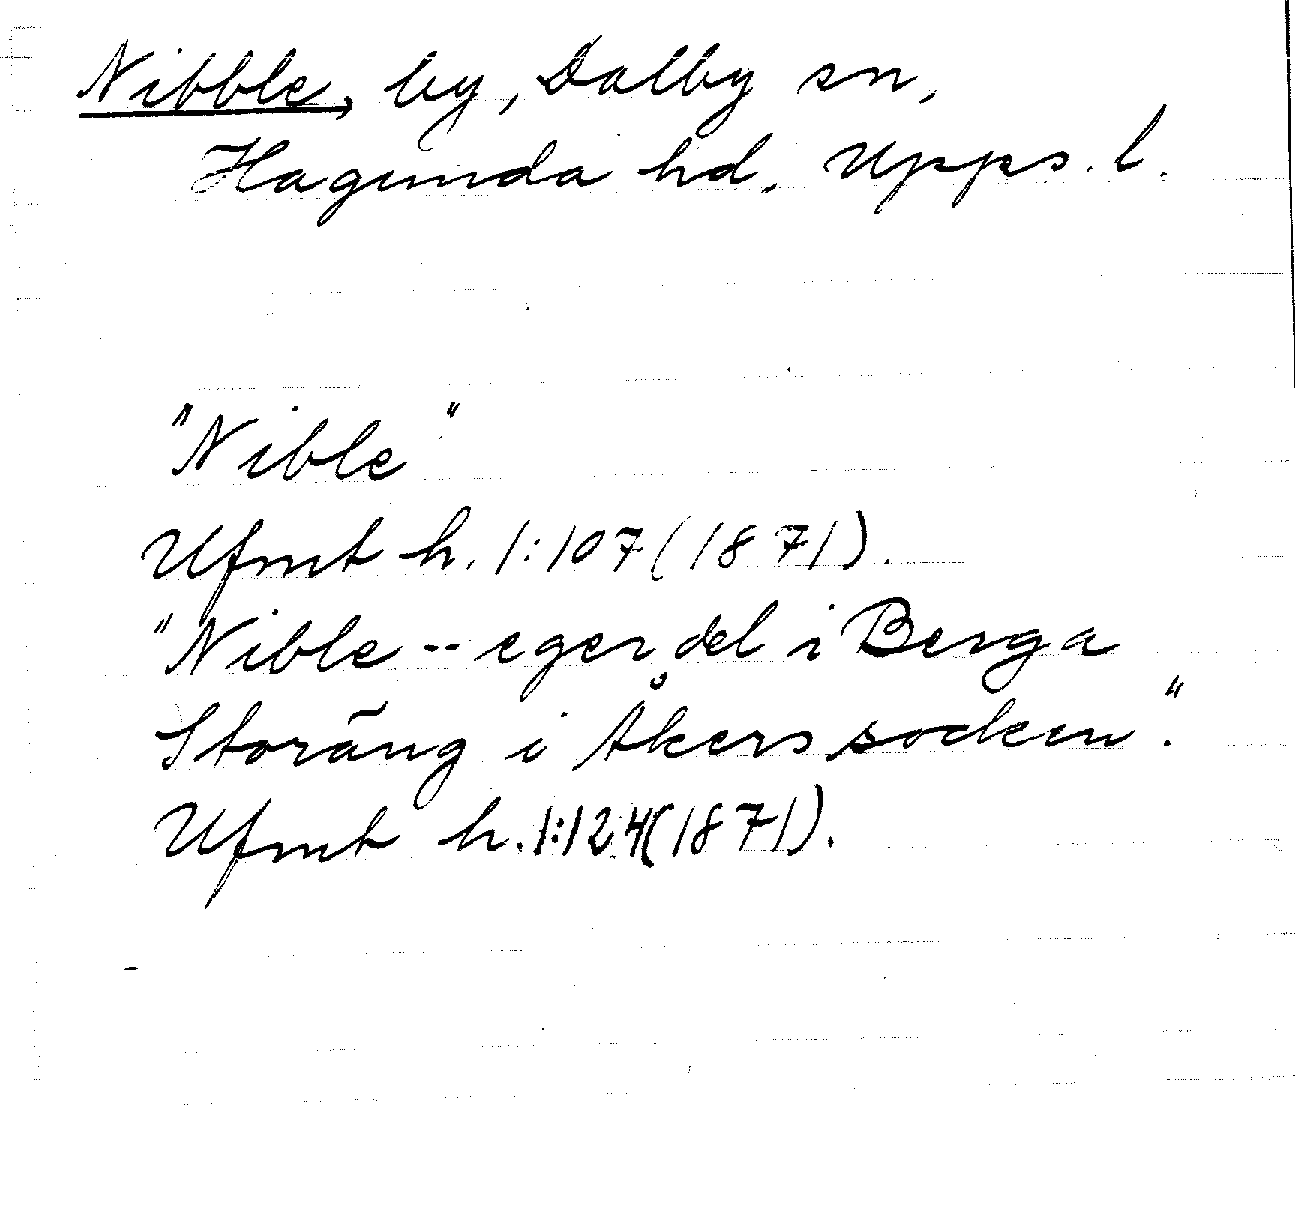 Nibble, by, Dalby sn,
Hagunda hd. Upps. l.
"Nible"
Ufmt h. 1:107(1871).
"Nible -- eger del i Berga
Storäng i Åkers socken".
Ufmt h. 1:124(1871).